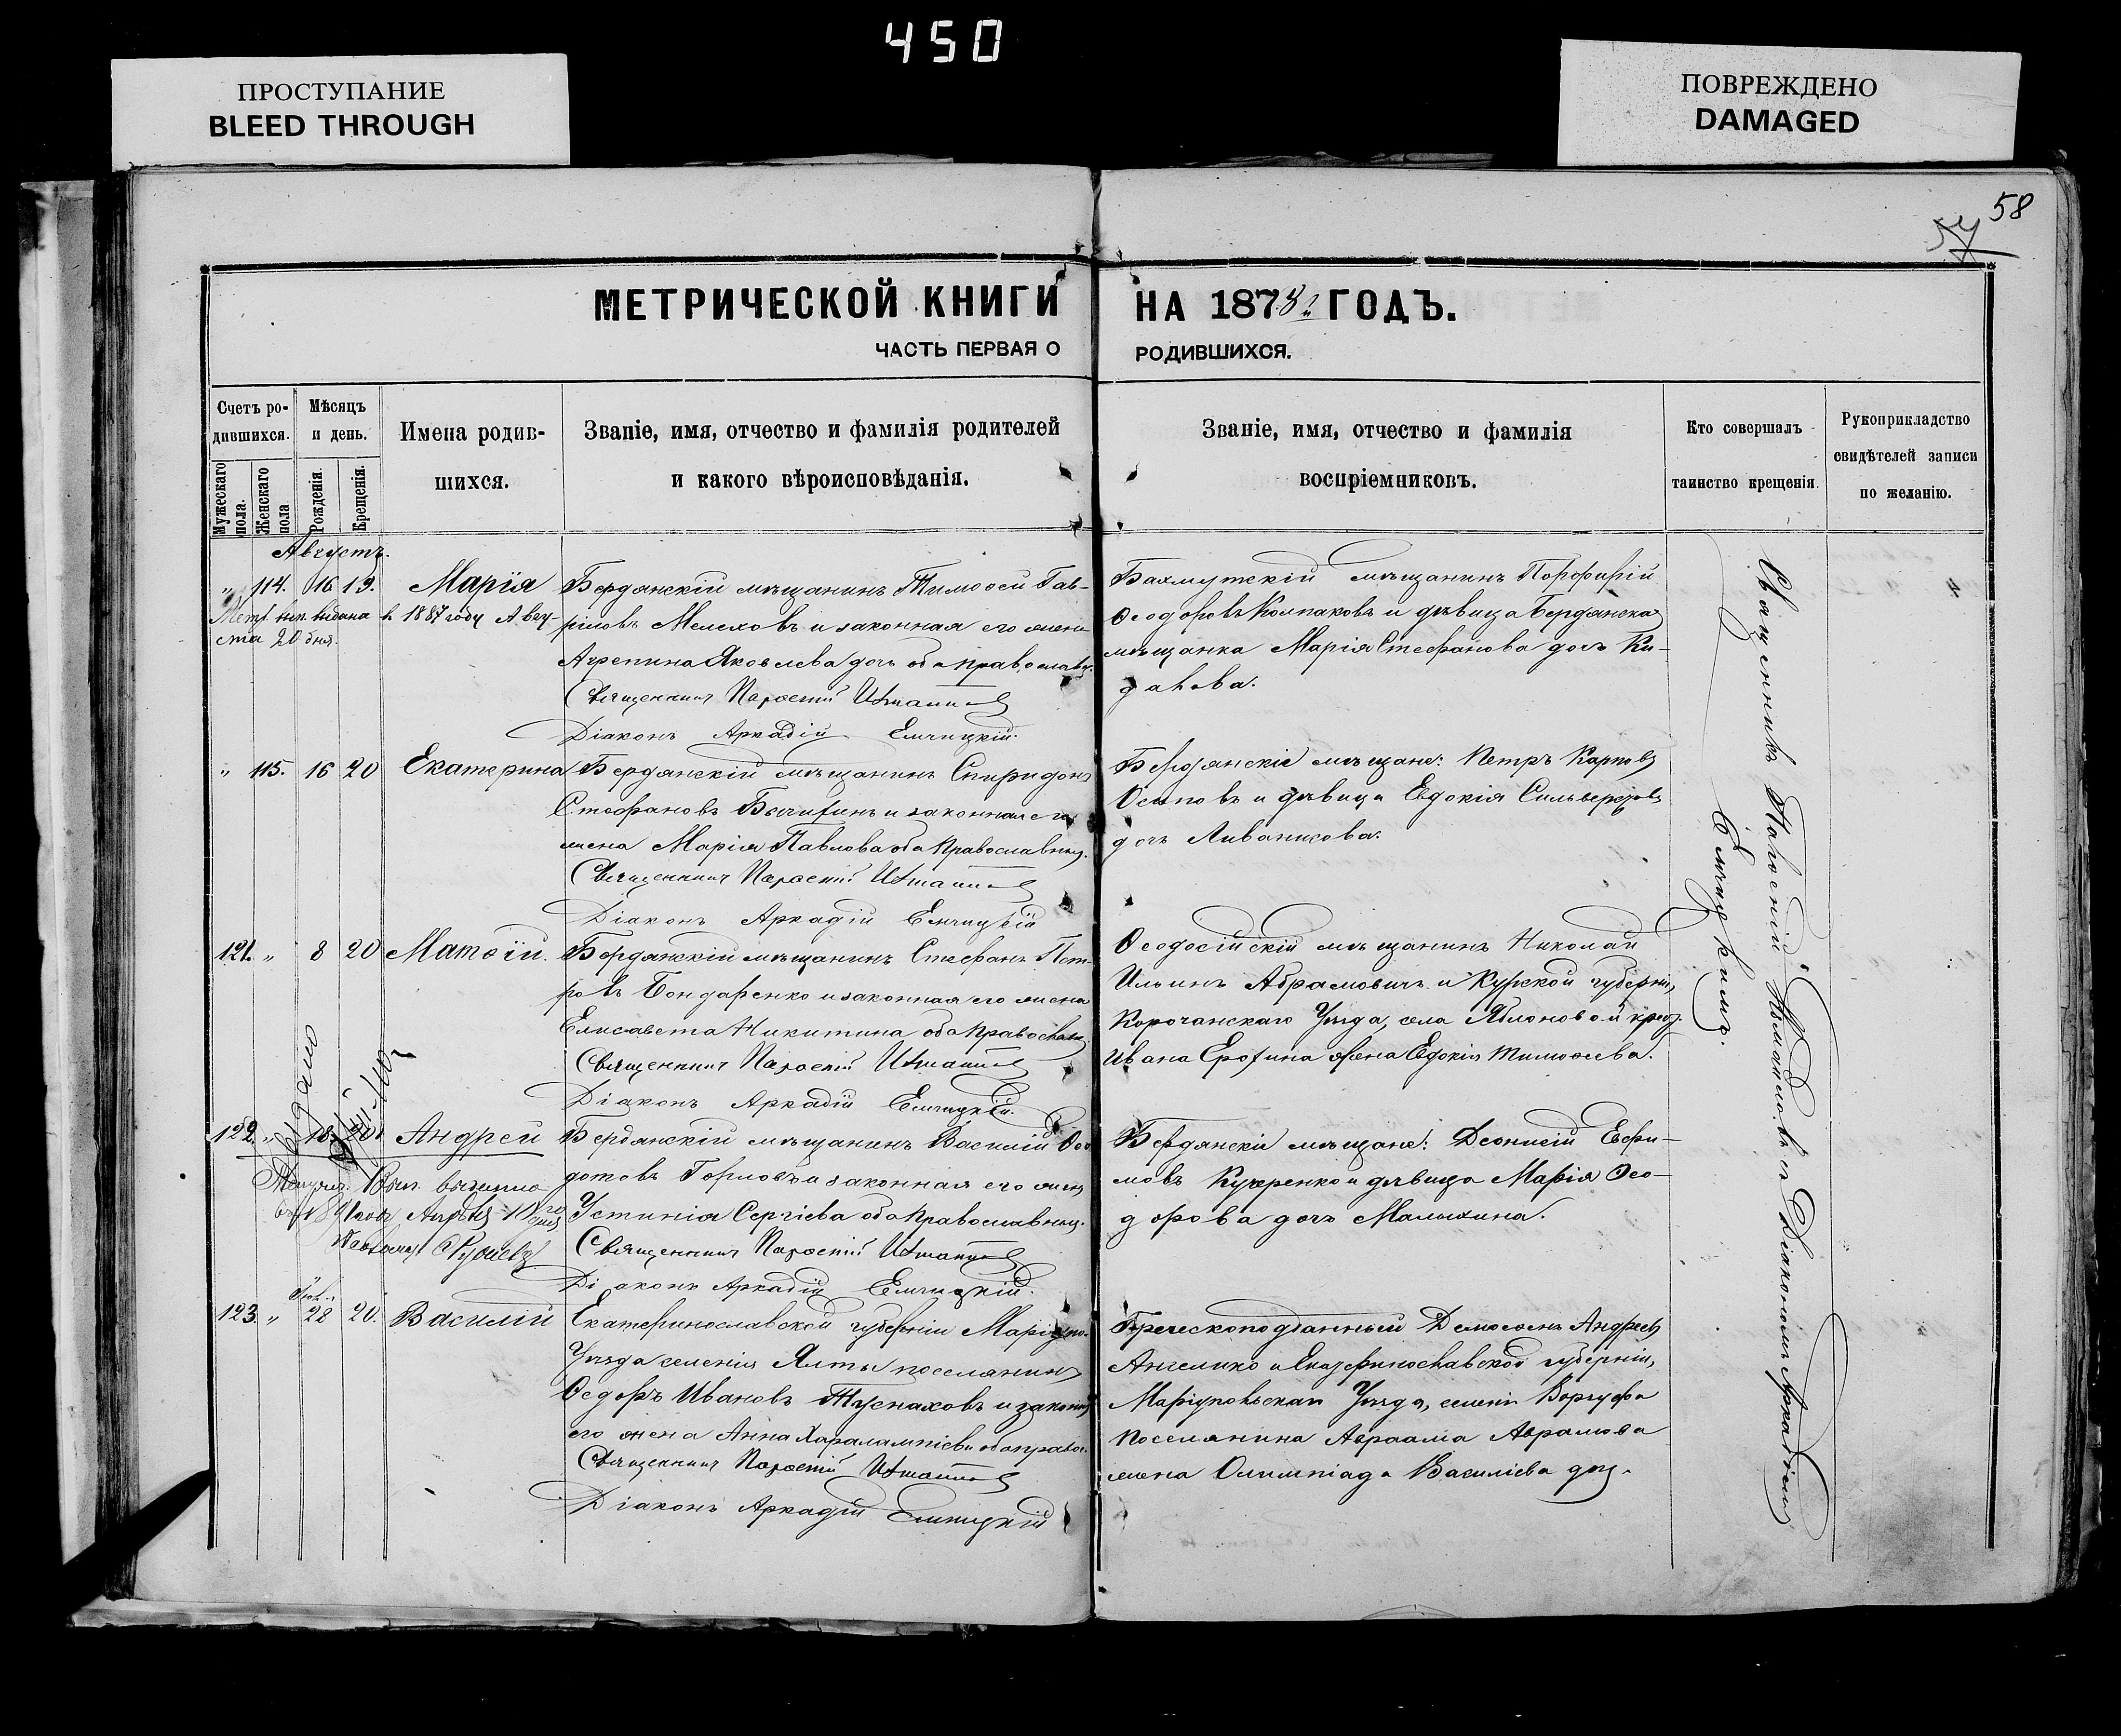 450
ПРОСТУПАНИЕ
BLEED THROUGH
ПОВРЕЖДЕНО
DAMAGED
58
57
МЕТРИЧЕСКОЙ КНИГИ НА 1878 ГОДЪ.
ЧАСТЬ ПЕРВАЯ О РОДИВШИХСЯ.
Счетъ ро-
дившихся.
Мужескаго
пола.
Женскаго
пола
Мѣсяцъ
и день.
Рожденія.
Крещенія.
Имена родив-
шихся.
Званіе, имя, отчество и фамилія родителей
и какого вѣроисповѣданія.
Званіе, имя, отчество и фамилія
воспріемниковъ.
Кто совершалъ
таинство крещенія.
Рукоприкладство
свидѣтелей записи
по желанію.
Августъ.
" 114. 16 19. Марія
Метр. вып. выдана въ 1887 году Авгу-
ста 20 дня.
Бердянскій мѣщанинъ Тимоѳей Гав-
ріловъ Мелеховъ и законная его жена
Агрепина Яковлева дочь оба православн.
Священникъ
Діаконъ Аркадій Емчицкій.
Бахмутскій мѣщанинъ Порфирій
Ѳеодоровъ Колпаковъ и дѣвица Бердянская
мѣщанка Марія Стефанова дочь Ки-
дакова.
" 115. 16 20 Екатерина
Бердянскій мѣщанинъ Спиридонъ
Стефановъ и законная его
жена Марія Павлова оба Православныя.
Священникъ
Діаконъ Аркадій Емчицкій
Бердянскіе мѣщане: Петръ Карповъ
Осиповъ и дѣвица Евдокія
дочь Ливаникова.
121. " 8 20 Матѳій.
Бердянскій мѣщанинъ Стефанъ Пет-
ровъ Бондаренко и законная его жена
Елисавета Никитина оба Православн.
Священникъ
Діаконъ Аркадій Емчицкій.
Ѳеодосійскій мѣщанинъ Николай
Ильинъ Абрамовичъ и Курской губерніи,
Корочанскаго Уѣзда, села Яблоновой крест.
Ивана Ерохина жена Евдокія Тимоѳеева.
122. " 18 20 Андрей
Выдано
Бердянскій мѣщанинъ Василій Ѳео-
дотовъ Горловъ и законная его жена
Устинія Сергіева оба Православныя.
Священникъ
Діаконъ Аркадій Емчицкій.
Бердянскіе мѣщане: Деонисій Ефи-
мовъ Кухренко и дѣвица Марія Ѳео-
дорова дочь Малыхина.
123. " 28 20. Василій
Екатеринославской губерніи Маріупо.
Уѣзда селенія Ялты поселянинъ
Ѳедоръ Ивановъ Туснаховъ и законная
его жена Анна Харалампіева оба правос.
Священникъ
Діаконъ Аркадій Емчицкій
Греческоподданный Демосѳенъ Андреевъ
Ангелико и Екатеринославской губерніи,
Маріупольскаго Уѣзда, селенія
поселянина Авраама Аврамова
жена Олимпіада Василіева дочь.
Священникъ съ Діакономъ Аркадіемъ
Емчицкимъ.